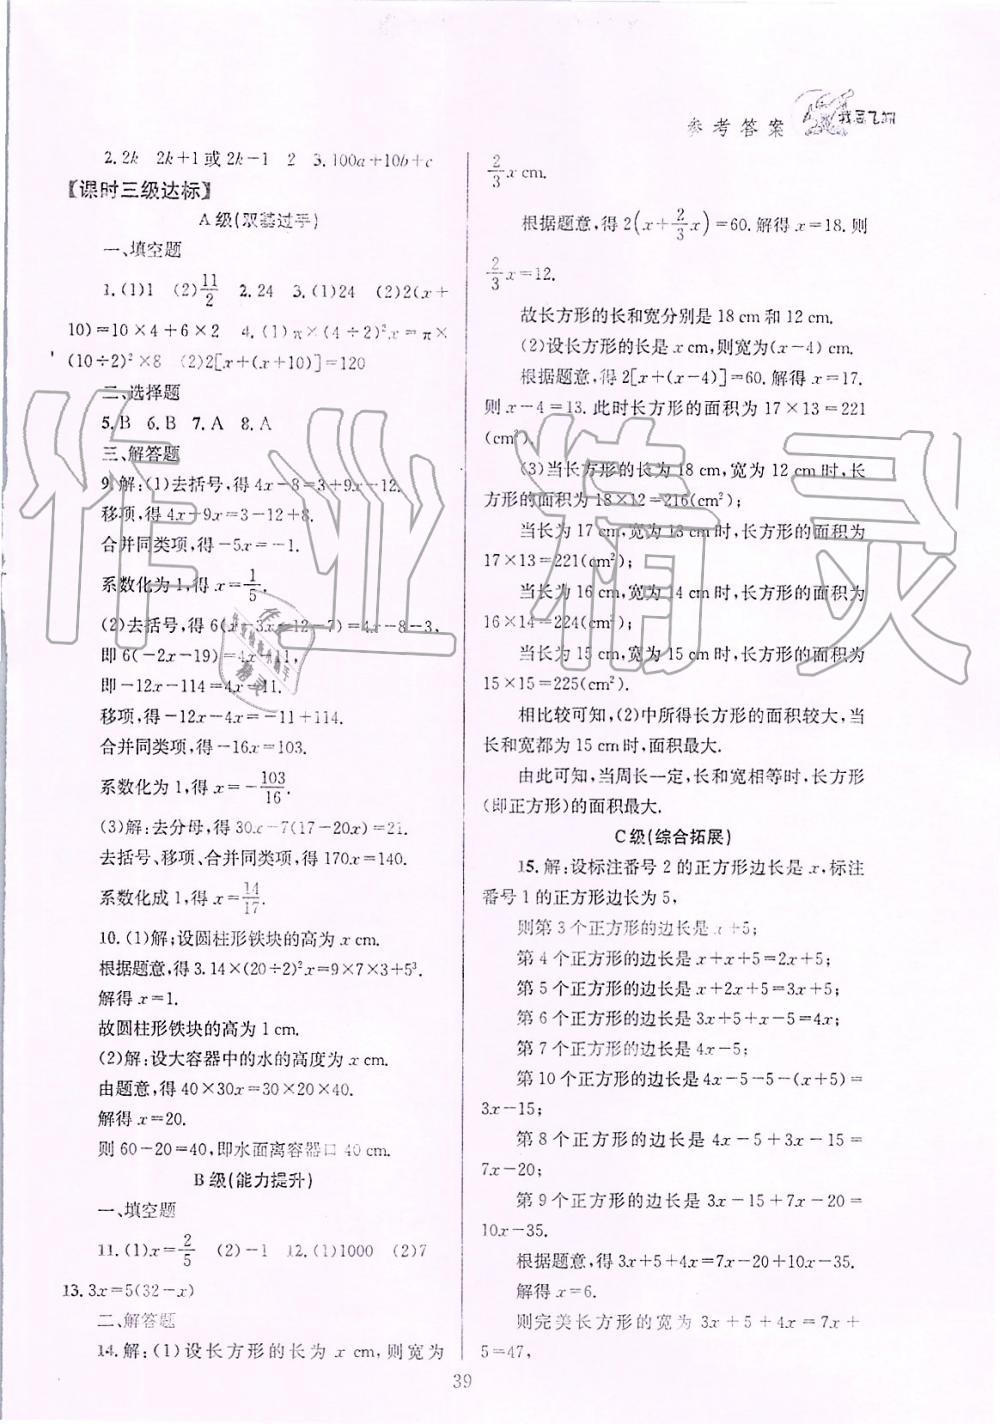 参考答案
2. 2k　2k+1或2k-1　2　3. 100a+10b+c
【课时三级达标】
A级(双基过手)
一、填空题
1. (1)1　(2)11/2　2. 24　3. (1)24　(2)2(x+
10)=10×4+6×2　4. (1)π×(4÷2)²x=π×
(10÷2)²×8　(2)2[x+(x+10)]=120
二、选择题
5. B　6. B　7. A　8. A
三、解答题
9. 解:(1)去括号,得4x-8=3+9x-12.
移项,得4x+9x=3-12+8.
合并同类项,得-5x=-1.
系数化为1,得x=1/5.
(2)去括号,得6(x-3x-12-7)=4x-8-3,
即6(-2x-19)=4x-11,
即-12x-114=4x-11.
移项,得-12x-4x=-11+114.
合并同类项,得-16x=103.
系数化为1,得x=-103/16.
(3)解:去分母,得30x-7(17-20x)=21.
去括号、移项、合并同类项,得170x=140.
系数化成1,得x=14/17.
10. (1)解:设圆柱形铁块的高为x cm.
根据题意,得3.14×(20÷2)²x=9×7×3+5³.
解得x=1.
故圆柱形铁块的高为1 cm.
(2)解:设大容器中的水的高度为x cm.
由题意,得40×30x=30×20×40.
解得x=20.
则60-20=40,即水面离容器口40 cm.
B级(能力提升)
一、填空题
11. (1)x=2/5　(2)-1　12. (1)1000　(2)7
13. 3x=5(32-x)
二、解答题
14. 解:(1)设长方形的长为x cm,则宽为
2/3x cm.
根据题意,得2(x+2/3x)=60.解得x=18.则
2/3x=12.
故长方形的长和宽分别是18 cm和12 cm.
(2)设长方形的长是x cm,则宽为(x-4) cm.
根据题意,得2[x+(x-4)]=60.解得x=17.
则x-4=13.此时长方形的面积为17×13=221
(cm²).
(3)当长方形的长为18 cm,宽为12 cm时,长
方形的面积为18×12=216(cm²);
当长为17 cm,宽为13 cm时,长方形的面积为
17×13=221(cm²);
当长为16 cm,宽为14 cm时,长方形的面积为
16×14=224(cm²);
当长为15 cm,宽为15 cm时,长方形的面积为
15×15=225(cm²).
相比较可知,(2)中所得长方形的面积较大,当
长和宽都为15 cm时,面积最大.
由此可知,当周长一定,长和宽相等时,长方形
(即正方形)的面积最大.
C级(综合拓展)
15. 解:设标注番号2的正方形边长是x,标注
番号1的正方形边长为5,
则第3个正方形的边长是x+5;
第4个正方形的边长是x+x+5=2x+5;
第5个正方形的边长是x+2x+5=3x+5;
第6个正方形的边长是3x+5+x-5=4x;
第7个正方形的边长是4x-5;
第10个正方形的边长是4x-5-5-(x+5)=
3x-15;
第8个正方形的边长是4x-5+3x-15=
7x-20;
第9个正方形的边长是3x-15+7x-20=
10x-35.
根据题意,得3x+5+4x=7x-20+10x-35.
解得x=6.
则完美长方形的宽为3x+5+4x=7x+
5=47,
39
作业精灵